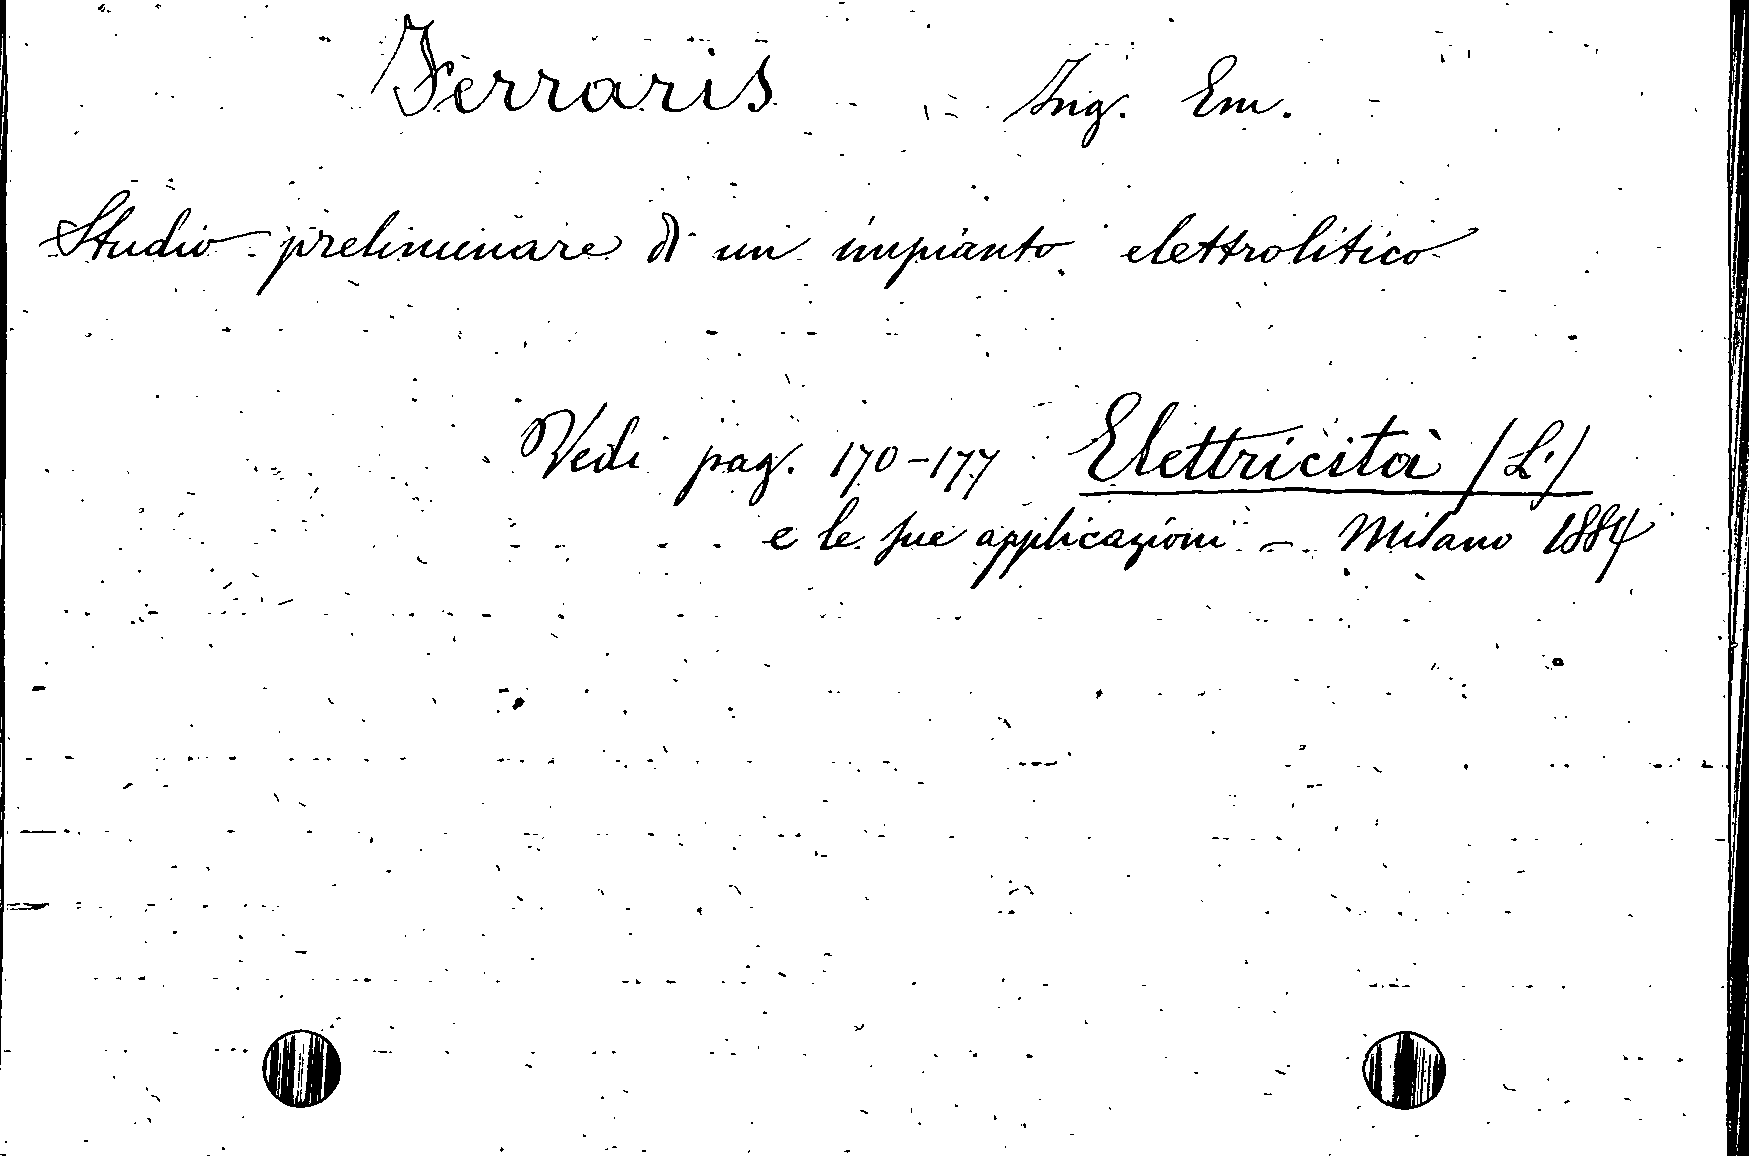 Ferraris Ing. Em.
Studio preliminare di un impianto elettrolitico
Vedi pag. 170-177 Elettricità (L')
e le sue applicazioni - Milano 1884